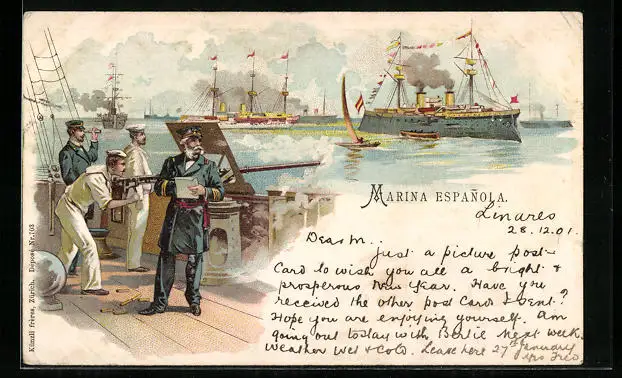 MARINA ESPAÑOLA.
Linares
28.12.01.
Dear M..
Just a picture post-
Card to wish you all a bright &
prosperous New Year. Have you
received the other post Cards I sent?
Hope you are enjoying yourself. Am
going out to stay with Bertie next week.
Weather Wet & Cold. Leave here 27th January
Künzli frères, Zürich. Deposé Nr. 703